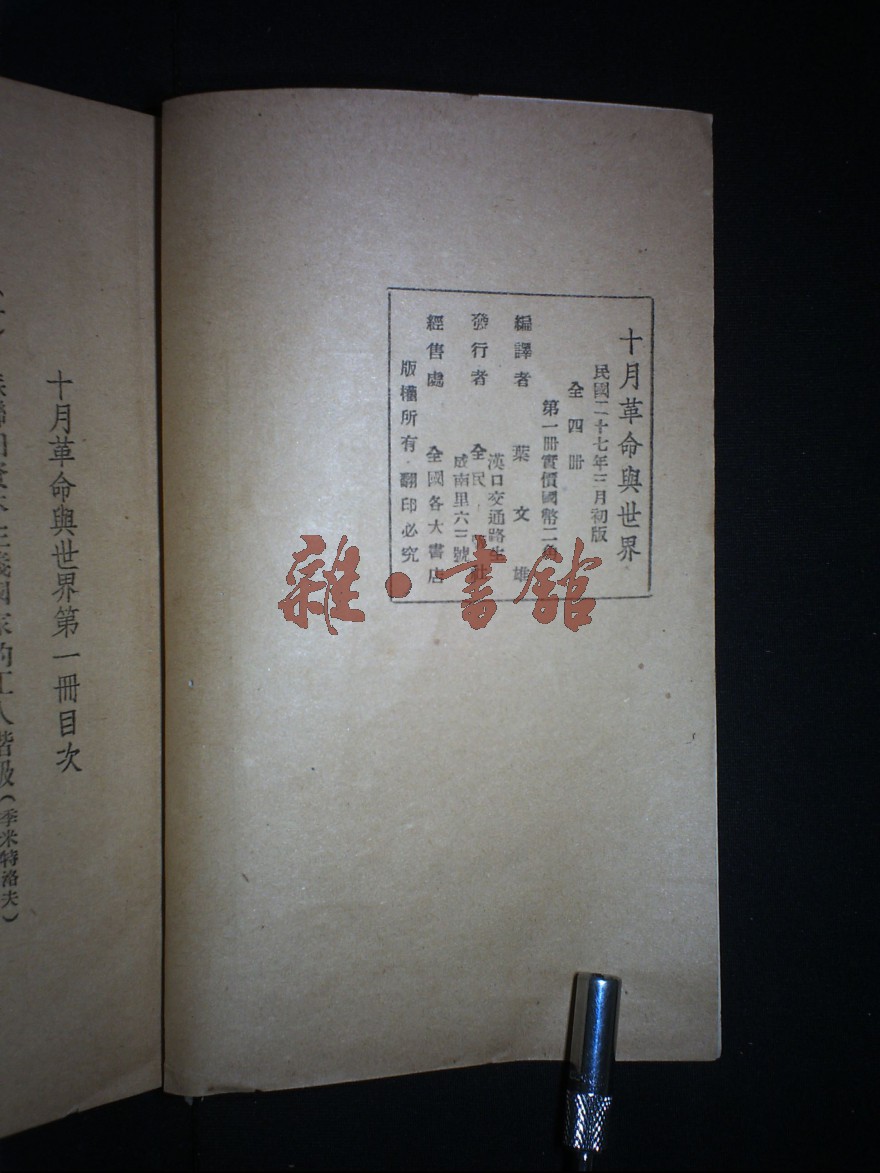 十月革命與世界
民國二十七年三月初版
全四冊
第一冊實價國幣二角
編譯者 葉文雄
漢口交通路生
成南里六三號
發行者 全民 社
經售處 全國各大書店
版權所有·翻印必究
十月革命與世界第一冊目次
國家的工人階級(季米特洛夫)
雜·書館